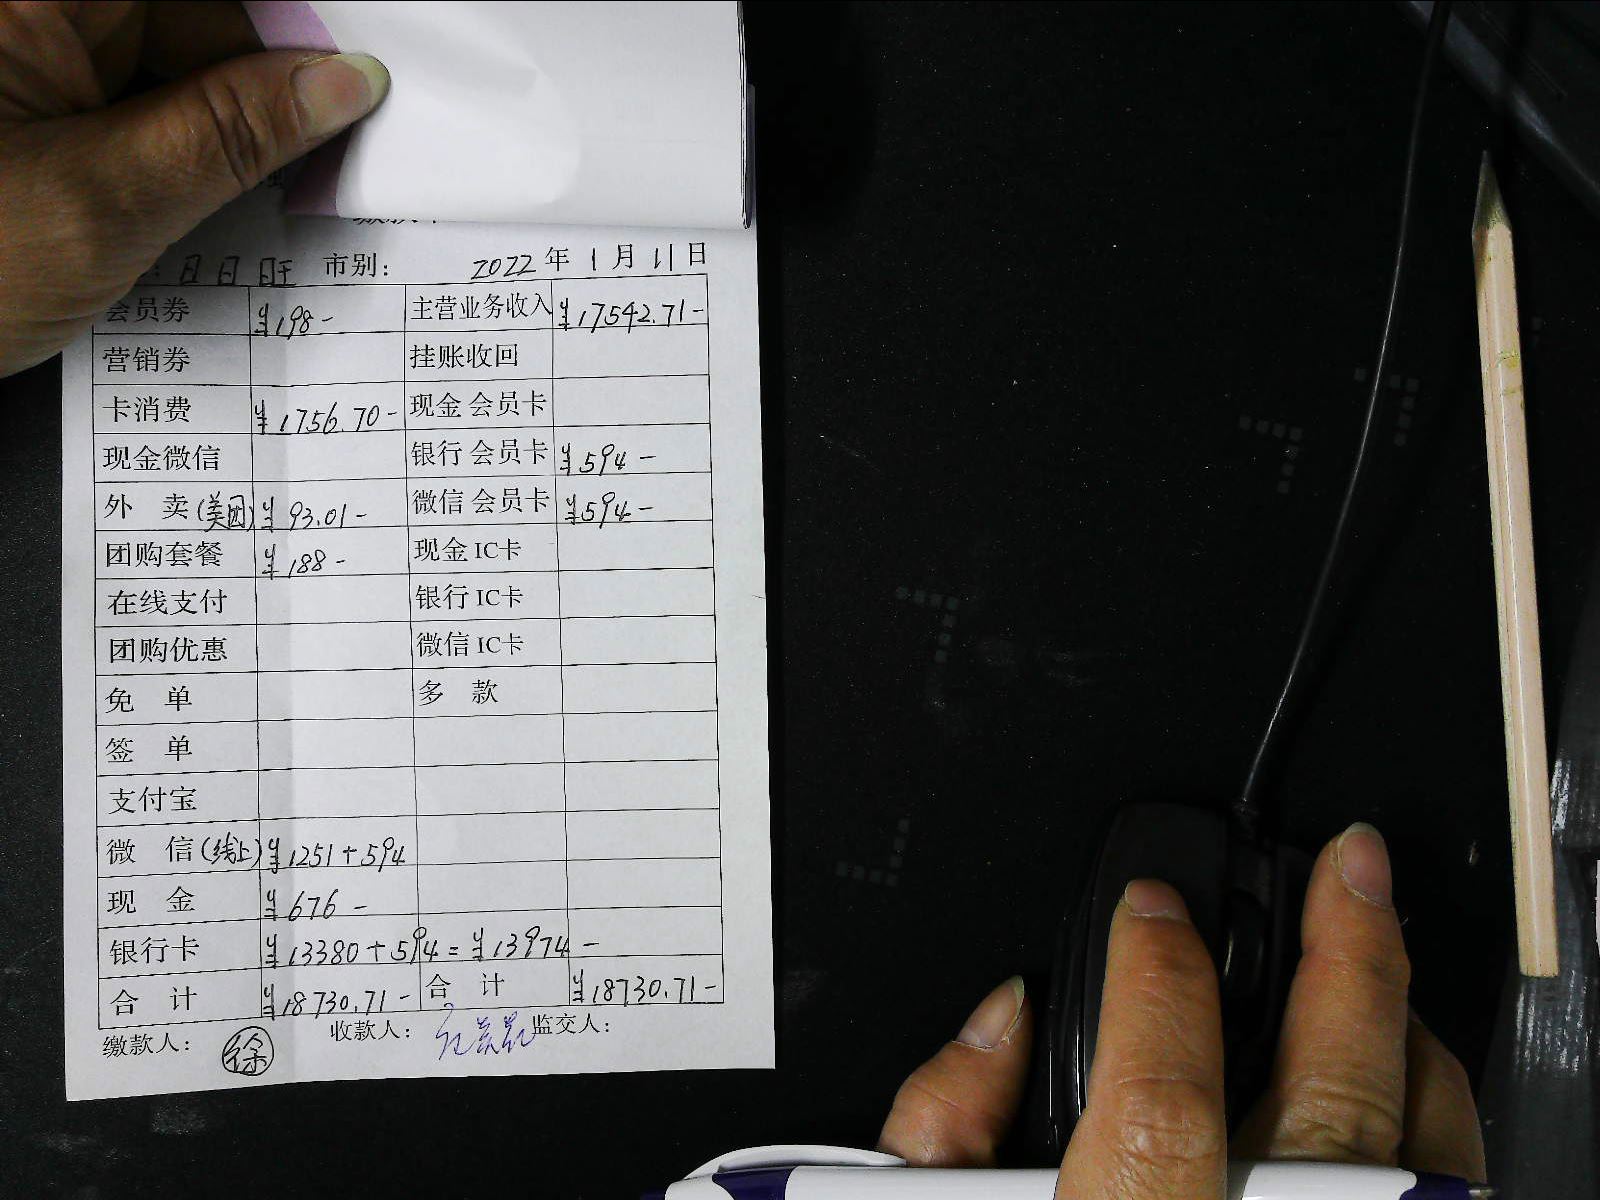 : 日日旺 市别: 2022年1月11日
会员券 ¥198- 主营业务收入 ¥17542.71-
营销券 挂账收回
卡消费 ¥1756.70- 现金会员卡
现金微信 银行会员卡 ¥594-
外 卖(美团) ¥93.01- 微信会员卡 ¥594-
团购套餐 ¥188- 现金IC卡
在线支付 银行IC卡
团购优惠 微信IC卡
免 单 多 款
签 单
支付宝
微 信(线上) ¥1251+594
现 金 ¥676-
银行卡 ¥13380+594=¥13974-
合 计 ¥18730.71- 合 计 ¥18730.71-
缴款人: 徐 收款人: 监交人: